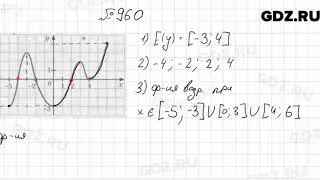 GDZ.RU
№ 960
1) E(y) = [-3; 4]
2) -4; -2; 2; 4
3) ф-ия возр. при
x ∈ [-5; -3] ∪ [0; 3] ∪ [4; 6]
ф-ия